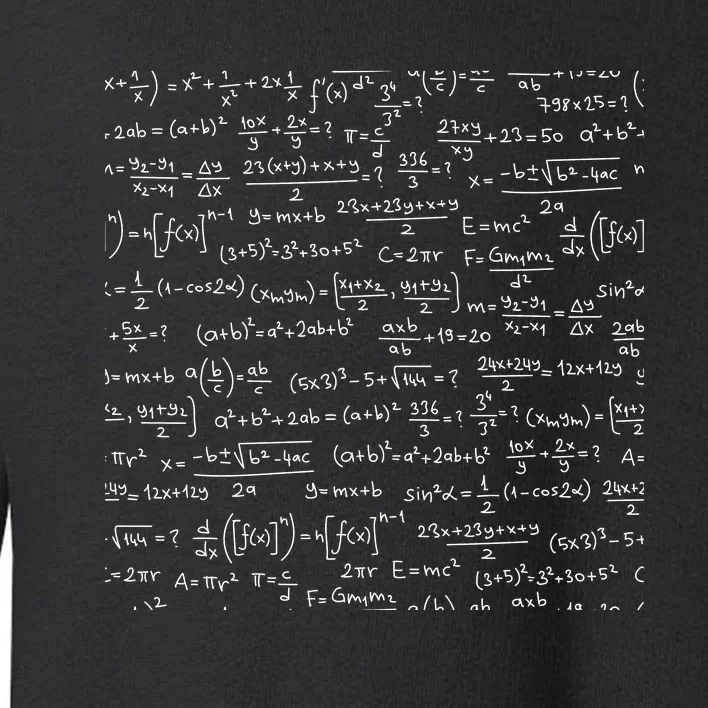 x+1/x) = x²+1/x²+2x1/x f'(x) d² 3⁴/3²=? a(b/c)=ab/c ab +19=20
798x25=? (
2ab=(a+b)² 10x/y+2x/y=? π=c/d 27xy/xy+23=50 a²+b²+
=y2-y1/x2-x1=Δy/Δx 23(x+y)+x+y/2=? 336/3=? x=-b±√b²-4ac n
n)=n[f(x)]ⁿ⁻¹ y=mx+b 23x+23y+x+y/2 E=mc² 2a d/dx([f(x)]
(3+5)²=3²+30+5² C=2πr F=Gm1m2/d²
=1/2(1-cos2α) (xmym)=[x1+x2/2, y1+y2/2] m=y2-y1/x2-x1=Δy/Δx sin²α
+5x/x=? (a+b)²=a²+2ab+b² axb/ab+19=20 2ab/ab
=mx+b a(b/c)=ab/c (5x3)³-5+√144=? 24x+24y/2=12x+12y
, y1+y2/2] a²+b²+2ab=(a+b)² 336/3=? 3⁴/3²=? (xmym)=[x1+x/2
πr² x=-b±√b²-4ac (a+b)²=a²+2ab+b² 10x/y+2x/y=? A=
=12x+12y 2a y=mx+b sin²α=1/2(1-cos2α) 24x+2/2
√144=? d/dx([f(x)]ⁿ)=n[f(x)]ⁿ⁻¹ 23x+23y+x+y/2 (5x3)³-5+
=2πr A=πr² π=c/d 2πr E=mc² (3+5)²=3²+30+5² C
F=Gm1m2 a(b) ab axb